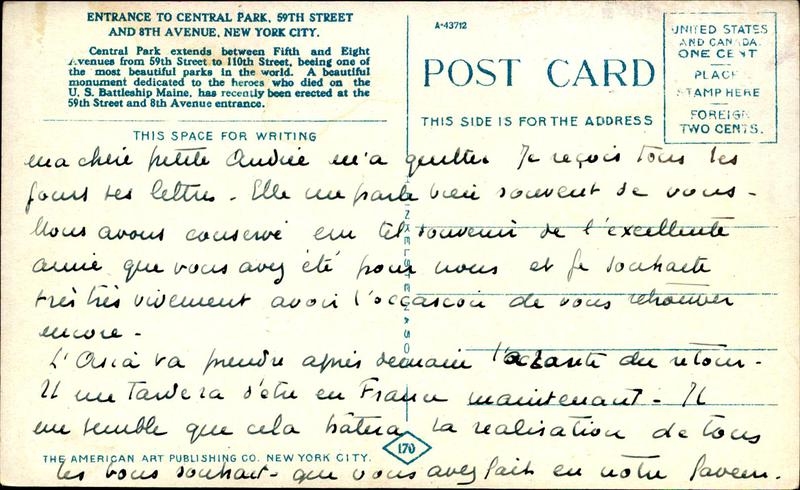 ENTRANCE TO CENTRAL PARK, 59TH STREET
AND 8TH AVENUE, NEW YORK CITY.
Central Park extends between Fifth and Eight
Avenues from 59th Street to 110th Street, beeing one of
the most beautiful parks in the world. A beautiful
monument dedicated to the heroes who died on the
U. S. Battleship Maine, has recently been erected at the
59th Street and 8th Avenue entrance.
THIS SPACE FOR WRITING
A-43712
POST CARD
THIS SIDE IS FOR THE ADDRESS
UNITED STATES
AND CANADA.
ONE CENT
PLACE
STAMP HERE
FOREIGN
TWO CENTS.
ma chère petite Andrée m'a quittée Je reçois tous les
jours ses lettres - Elle me parle bien souvent de vous -
Nous avons conservé un tel souvenir de l'excellente
amie que vous avez été pour nous et je souhaite
très très vivement avoir l'occasion de vous retrouver
encore -
L' va prendre après demain la route du retour -
Il me tardera d'être en France maintenant - Il
me semble que cela hâtera la réalisation de tous
les bons souhaits que vous avez fait en notre faveur.
THE AMERICAN ART PUBLISHING CO. NEW YORK CITY.
170